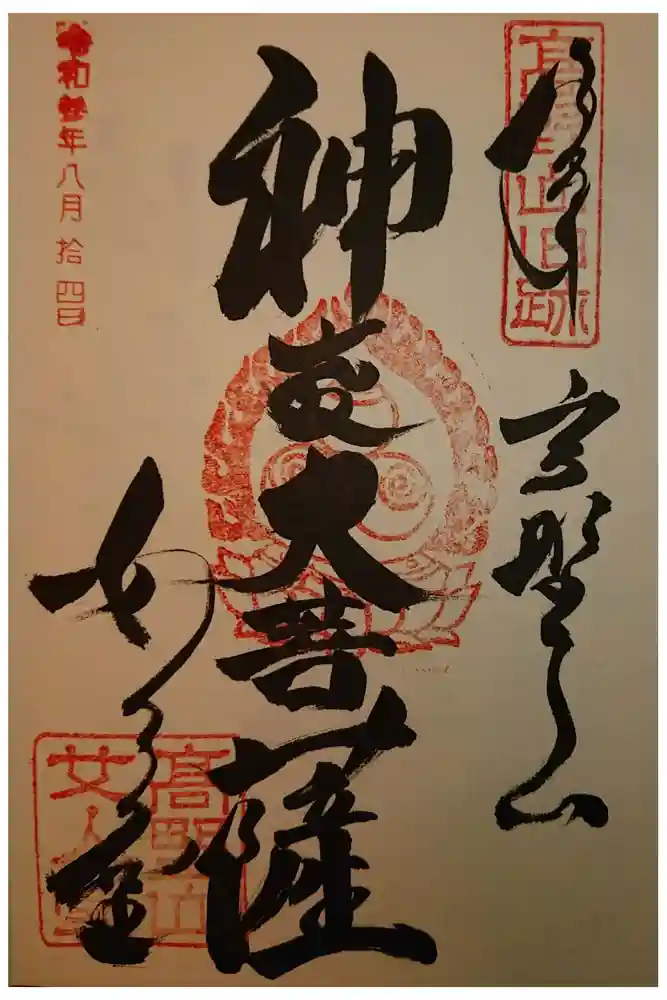 奉拝
高野山旧跡
高野山
神変大菩薩
女人堂
高野山
女人堂
令和年八月拾四日